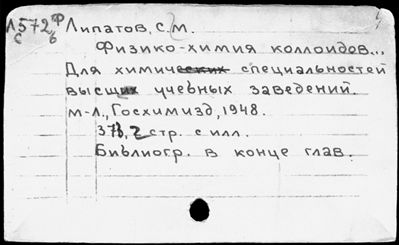 Л572 Ф Липатов, С.М.
С б
Физико-химия коллоидов...
Для химических специальностей
высших учебных заведений.
м-л., Госхимизд, 1948.
стр. с илл.
Библиогр. в конце глав.